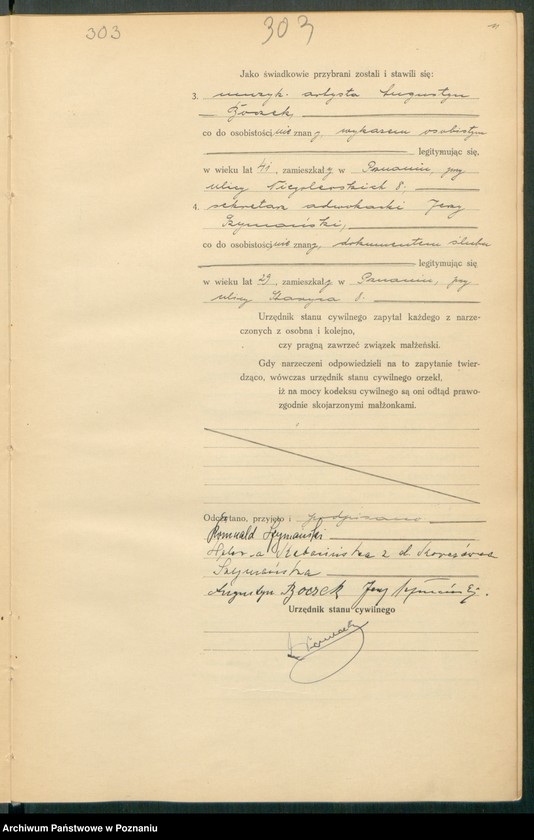 303 303
Jako świadkowie przybrani zostali i stawili się:
3. muzyk. artysta Augustyn
Boczek,
co do osobistości nie znany wykazem osobistym
legitymując się,
w wieku lat 41, zamieszkały w Poznaniu, przy
ulicy 8.
4. sekretarz adwokacki Jerzy
Szymański,
co do osobistości nie znany, dokumentem ślubu
legitymując się
w wieku lat 29, zamieszkały w Poznaniu, przy
ulicy 8.
Urzędnik stanu cywilnego zapytał każdego z narze-
czonych z osobna i kolejno,
czy pragną zawrzeć związek małżeński.
Gdy narzeczeni odpowiedzieli na to zapytanie twier-
dząco, wówczas urzędnik stanu cywilnego orzekł,
iż na mocy kodeksu cywilnego są oni odtąd prawo-
zgodnie skojarzonymi małżonkami.
Odczytano, przyjęto i podpisano
Romuald Szymański
z d.
Szymańska
Augustyn Boczek Jerzy Szymański.
Urzędnik stanu cywilnego
Archiwum Państwowe w Poznaniu